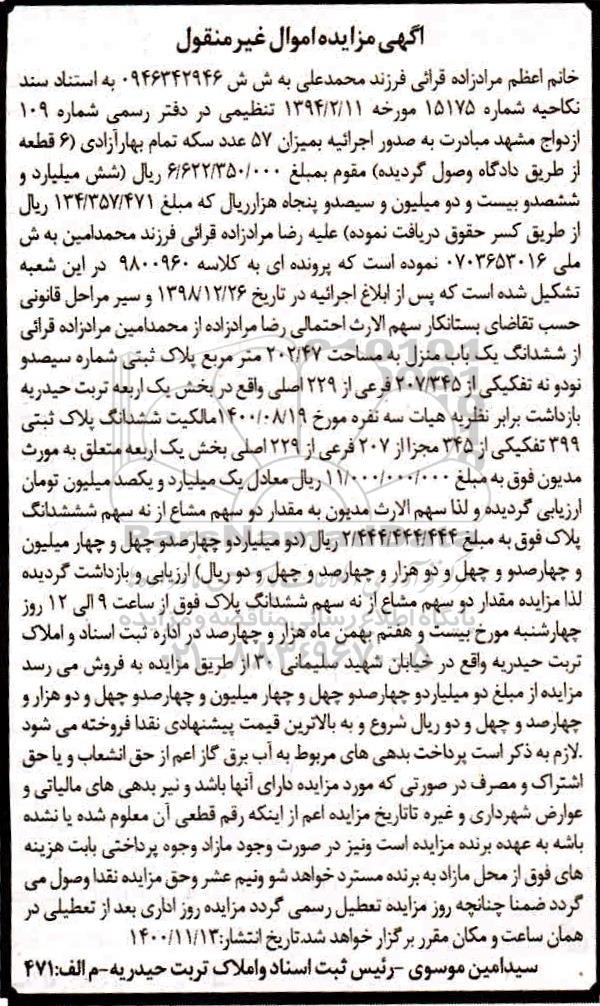 اگهی مزایده اموال غیر منقول
خانم اعظم مرادزاده قرائی فرزند محمدعلی به ش ش ۰۹۴۶۳۴۲۹۴۶ به استناد سند
نکاحیه شماره ۱۵۱۷۵ مورخه ۱۳۹۴/۲/۱۱ تنظیمی در دفتر رسمی شماره ۱۰۹
ازدواج مشهد مبادرت به صدور اجرائیه بمیزان ۵۷ عدد سکه تمام بهارآزادی (۶ قطعه
از طریق دادگاه وصول گردیده) مقوم بمبلغ ۶/۶۲۲/۳۵۰/۰۰۰ ریال (شش میلیارد و
ششصدو بیست و دو میلیون و سیصدو پنجاه هزارریال که مبلغ ۱۳۴/۳۵۷/۴۷۱ ریال
از طریق کسر حقوق دریافت نموده) علیه رضا مرادزاده قرائی فرزند محمدامین به ش
ملی ۰۷۰۳۶۵۳۰۱۶ نموده است که پرونده ای به کلاسه ۹۸۰۰۹۶۰ در این شعبه
تشکیل شده است که پس از ابلاغ اجرائیه در تاریخ ۱۳۹۸/۱۲/۲۶ و سیر مراحل قانونی
حسب تقاضای بستانکار سهم الارث احتمالی رضا مرادزاده از محمدامین مرادزاده قرائی
از ششدانگ یک باب منزل به مساحت ۲۰۲/۴۷ متر مربع پلاک ثبتی شماره سیصدو
نودو نه تفکیکی از ۲۰۷/۳۴۵ فرعی از ۲۲۹ اصلی واقع در بخش یک اربعه تربت حیدریه
بازداشت برابر نظریه هیات سه نفره مورخ ۱۴۰۰/۰۸/۱۹ مالکیت ششدانگ پلاک ثبتی
۳۹۹ تفکیکی از ۳۴۵ مجزا از ۲۰۷ فرعی از ۲۲۹ اصلی بخش یک اربعه متعلق به مورث
مدیون فوق به مبلغ ۱۱/۰۰۰/۰۰۰/۰۰۰ ریال معادل یک میلیارد و یکصد میلیون تومان
ارزیابی گردیده و لذا سهم الارث مدیون به مقدار دو سهم مشاع از نه سهم شششدانگ
پلاک فوق به مبلغ ۲/۴۴۴/۴۴۴/۴۴۴ ریال (دو میلیاردو چهارصدو چهل و چهار میلیون
و چهارصدو و چهل و دو هزار و چهارصد و چهل و دو ریال) ارزیابی و بازداشت گردیده
لذا مزایده مقدار دو سهم مشاع از نه سهم ششدانگ پلاک فوق از ساعت ۹ الی ۱۲ روز
چهارشنبه مورخ بیست و هفتم بهمن ماه هزار و چهارصد در اداره ثبت اسناد و املاک
تربت حیدریه واقع در خیابان شهید سلیمانی ۳۰ از طریق مزایده به فروش می رسد
مزایده از مبلغ دو میلیاردو چهارصدو چهل و چهار میلیون و چهارصدو چهل و دو هزار و
چهارصد و چهل و دو ریال شروع و به بالاترین قیمت پیشنهادی نقدا فروخته می شود
.لازم به ذکر است پرداخت بدهی های مربوط به آب برق گاز اعم از حق انشعاب و یا حق
اشتراک و مصرف در صورتی که مورد مزایده دارای آنها باشد و نیر بدهی های مالیاتی و
عوارض شهرداری و غیره تاتاریخ مزایده اعم از اینکه رقم قطعی آن معلوم شده یا نشده
باشه به عهده برنده مزایده است ونیز در صورت وجود مازاد وجوه پرداختی بابت هزینه
های فوق از محل مازاد به برنده مسترد خواهد شو ونیم عشر وحق مزایده نقدا وصول می
گردد ضمنا چنانچه روز مزایده تعطیل رسمی گردد مزایده روز اداری بعد از تعطیلی در
همان ساعت و مکان مقرر برگزار خواهد شد.تاریخ انتشار:۱۴۰۰/۱۱/۱۳
سیدامین موسوی -رئیس ثبت اسناد واملاک تربت حیدریه-م الف:۴۷۱
پایگاه اطلاع رسانی مناقصه و مزایده